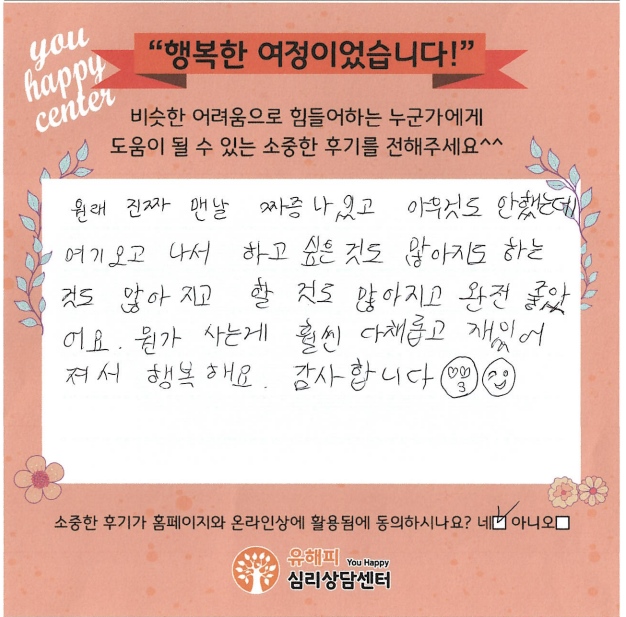 you
happy
center
“행복한 여정이었습니다!”
비슷한 어려움으로 힘들어하는 누군가에게
도움이 될 수 있는 소중한 후기를 전해주세요^^
원래 진짜 맨날 짜증나있고 아무것도 안했는데
여기오고 나서 하고 싶은것도 많아지도 하는
것도 많아 지고 할 것도 많아지고 완전 좋았
어요. 뭔가 사는게 훨씬 다채롭고 재밌어
져서 행복해요. 감사합니다
소중한 후기가 홈페이지와 온라인상에 활용됨에 동의하시나요? 네 아니오
유해피 You Happy
심리상담센터